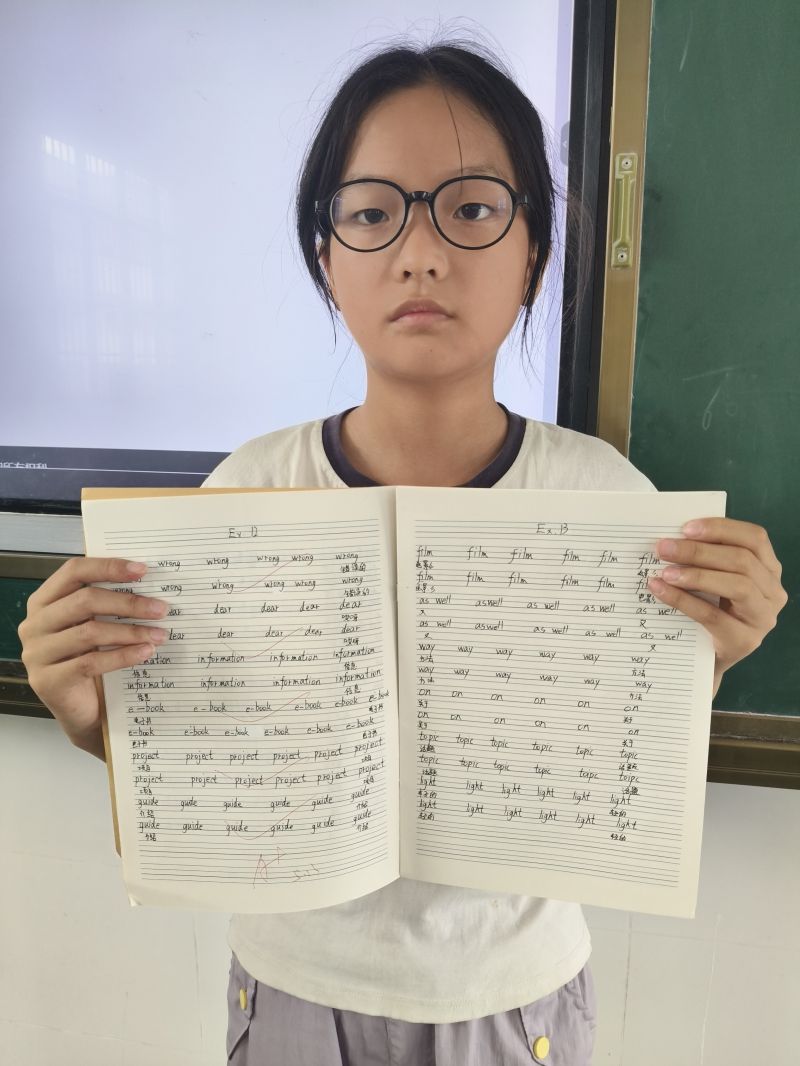 Ex 12
wrong wrong wrong wrong wrong
错误的
wrong wrong wrong wrong wrong wrong
错误的
dear dear dear dear
dear dear dear dear
information information information information
信息 信息
information information information information
信息 信息
e-book e-book e-book e-book e-book e-book
电子书 电子书
e-book e-book e-book e-book e-book e-book
电子书 电子书
project project project project project project
项目 项目
project project project project project project
项目 项目
guide guide guide guide guide guide
介绍 介绍
guide guide guide guide guide guide
介绍 介绍
A+
Ex. 13
film film film film film film
film film film film film film
as well as well as well as well as well
又 又
as well as well as well as well as well
又 又
way way way way way way
方法 方法
way way way way way way
方法 方法
on on on on on on
关于 关于
on on on on on on
关于 关于
topic topic topic topic topic topic
话题 话题
topic topic topic topic topic toipc
话题 话题
light light light light light light
轻的 轻的
light light light light light light
轻的 轻的